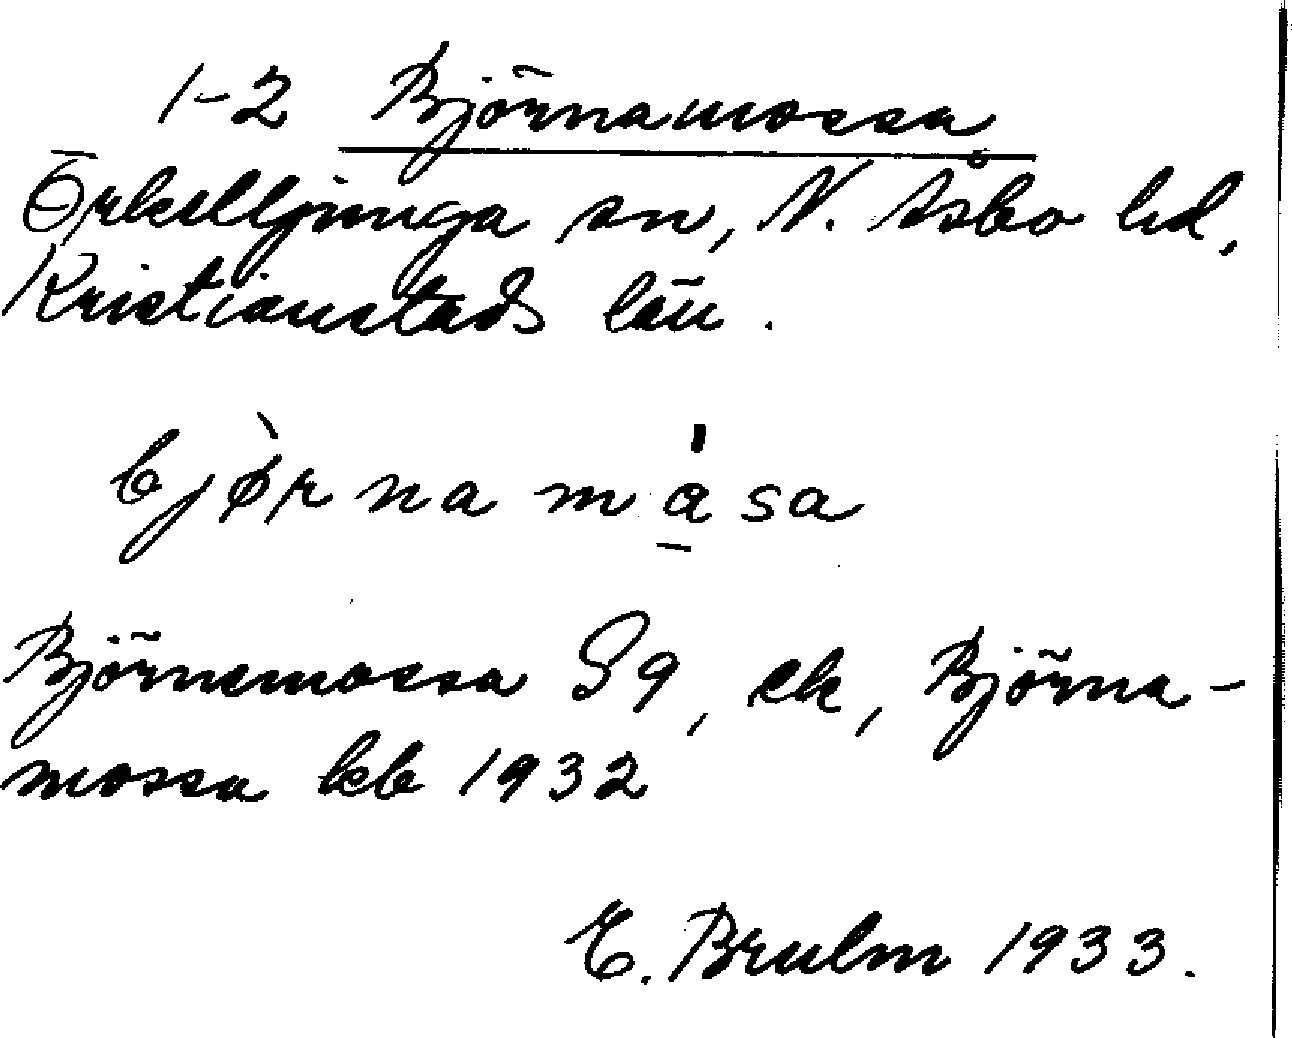 1-2 Björnamossa
Örkelljunga sn, N. Åsbo hd,
Kristianstads län.
bjø̀rnamása
Björnemossa S9, ek, Björna-
mossa kb 1932
E. Brulm 1933.